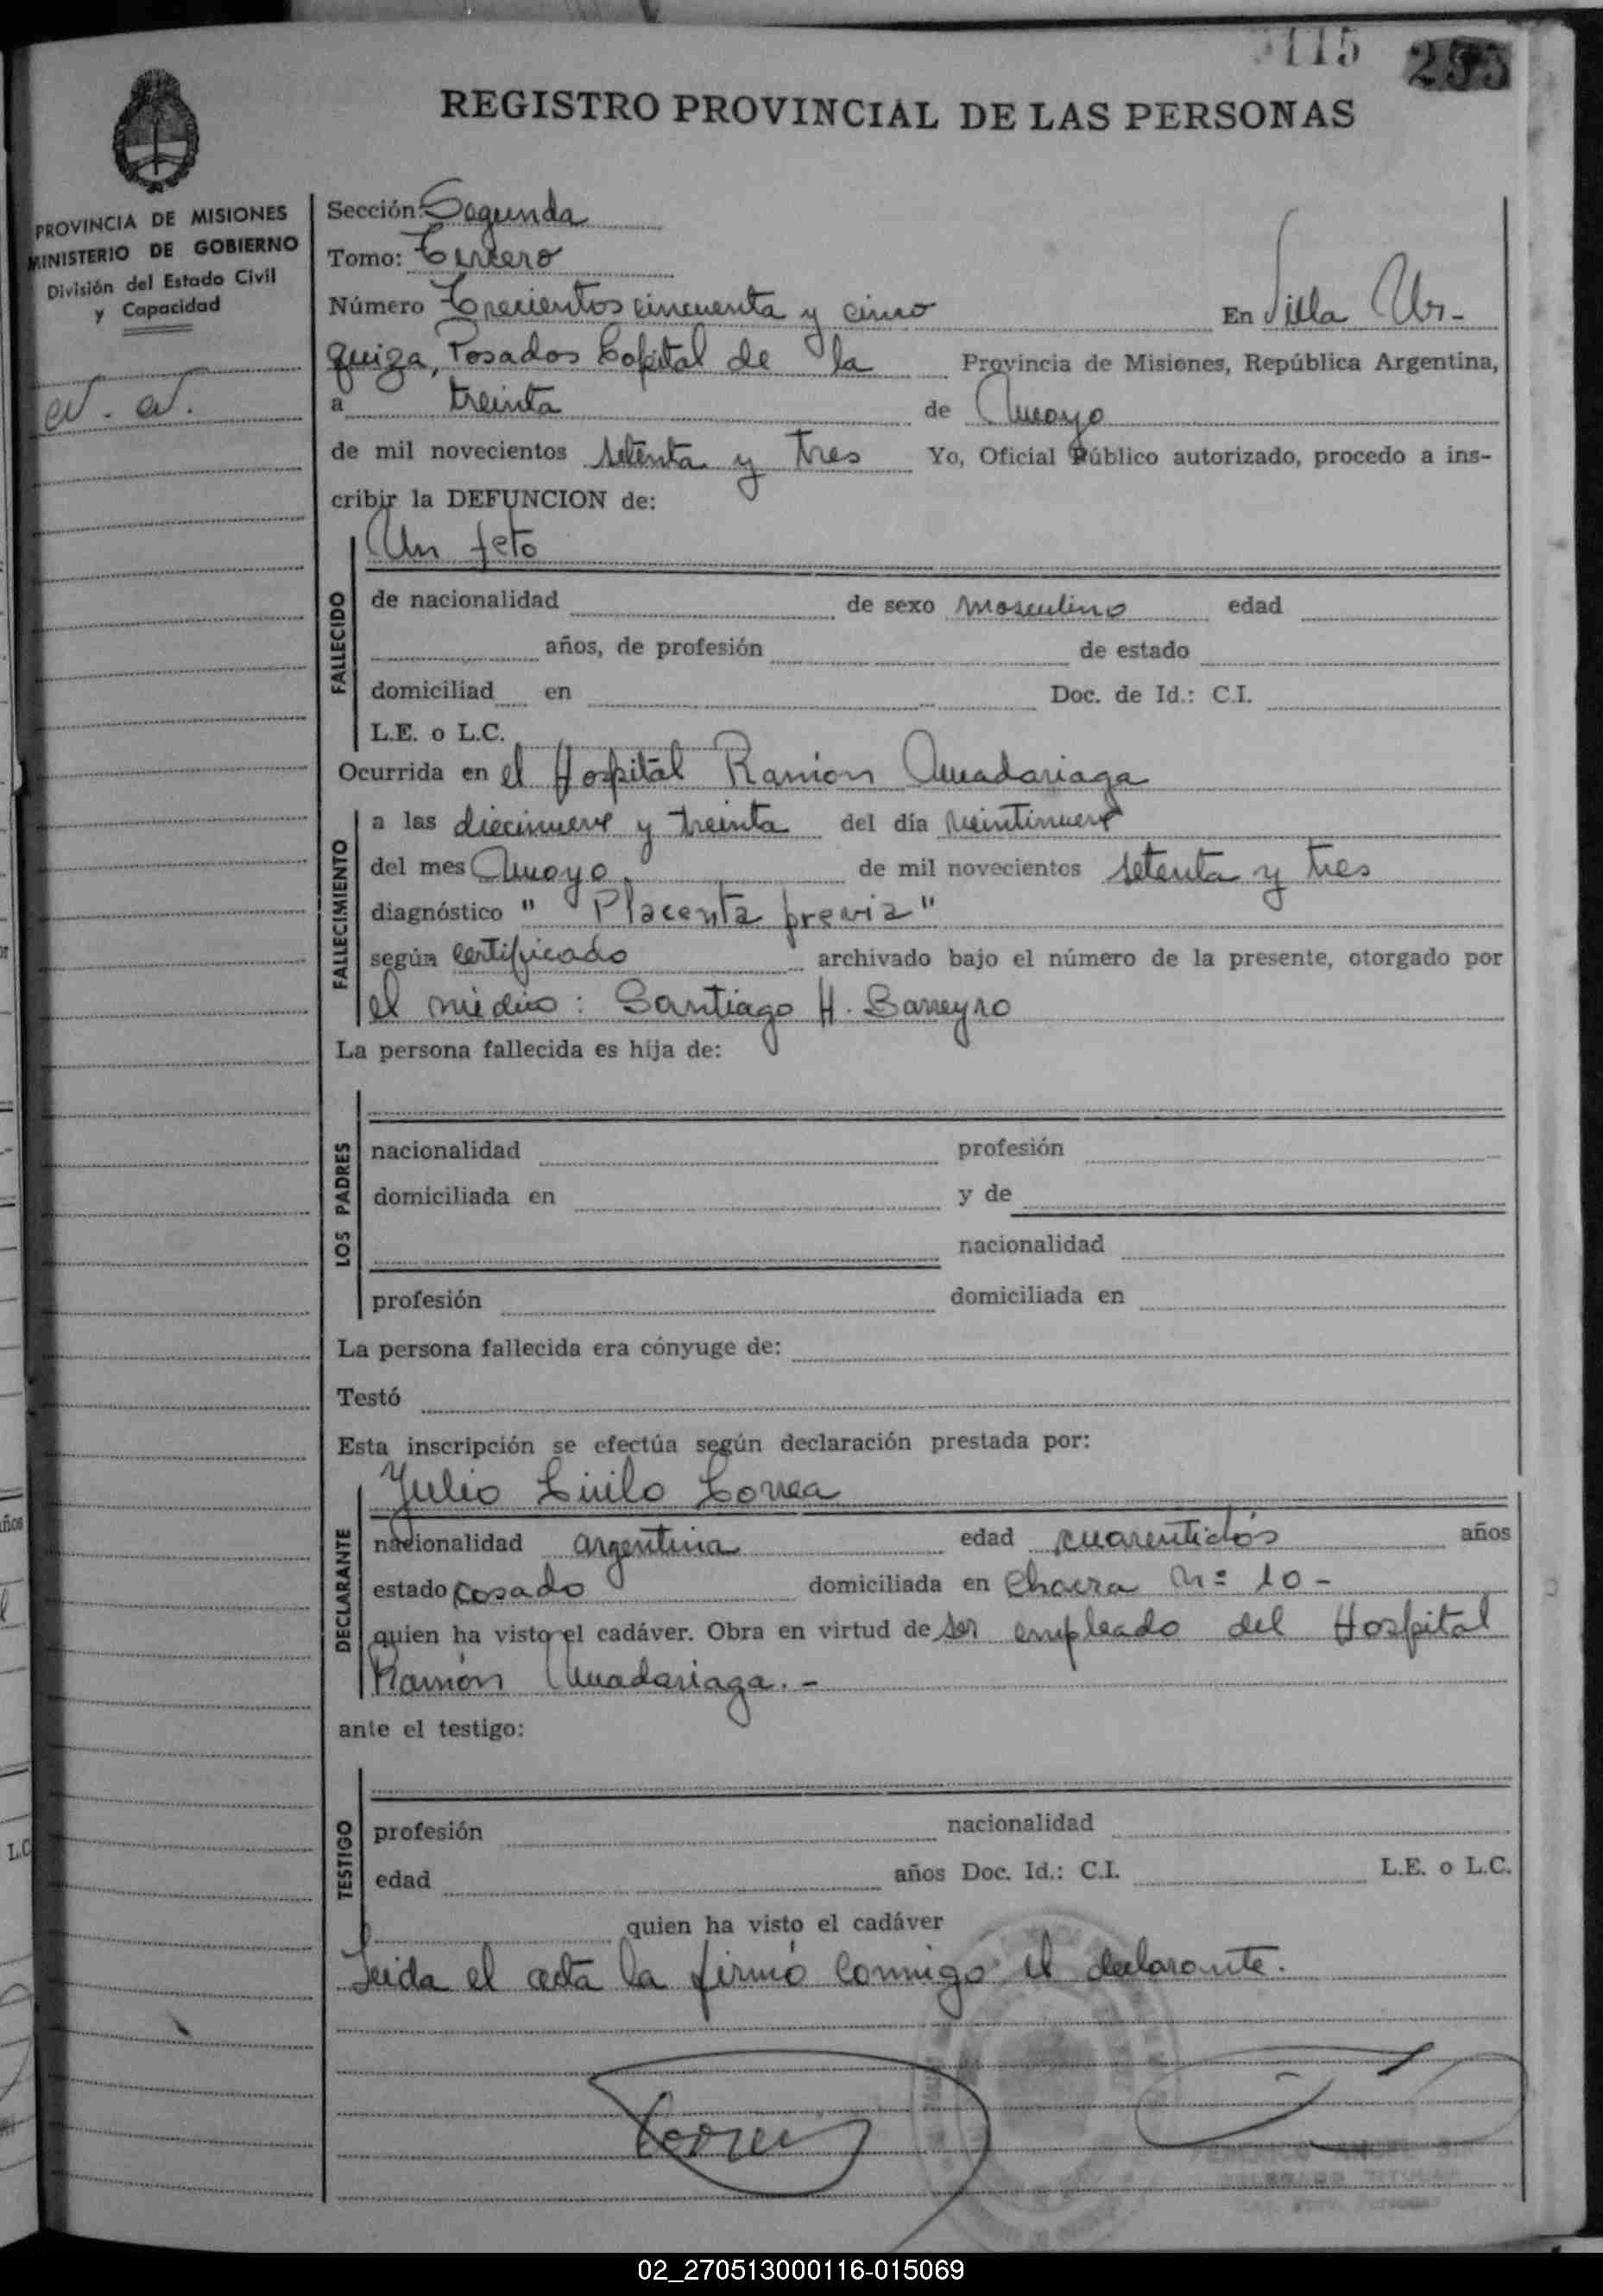 115 255
REGISTRO PROVINCIAL DE LAS PERSONAS
PROVINCIA DE MISIONES
MINISTERIO DE GOBIERNO
División del Estado Civil
y Capacidad
N. N.
Sección: Segunda
Tomo: Tercero
Número Trecientos cincuenta y cinco En Villa Ur-
quiza, Posadas Capital de la Provincia de Misiones, República Argentina,
a treinta de Mayo
de mil novecientos setenta y tres Yo, Oficial Público autorizado, procedo a ins-
cribir la DEFUNCION de:
Un feto
FALLECIDO
de nacionalidad de sexo masculino edad
años, de profesión de estado
domiciliad en Doc. de Id.: C.I.
L.E. o L.C.
Ocurrida en el Hospital Ramón Madariaga
FALLECIMIENTO
a las diecinueve y treinta del día veintinueve
del mes Mayo de mil novecientos setenta y tres
diagnóstico " Placenta previa"
según certificado archivado bajo el número de la presente, otorgado por
el médico: Santiago H. Barreyro
La persona fallecida es hija de:
LOS PADRES
nacionalidad profesión
domiciliada en y de
nacionalidad
profesión domiciliada en
La persona fallecida era cónyuge de:
Testó
Esta inscripción se efectúa según declaración prestada por:
Julio Cirilo Correa
DECLARANTE
nacionalidad argentina edad cuarentidós años
estado casado domiciliada en Chacra Nº 10 -
quien ha visto el cadáver. Obra en virtud de ser empleado del Hospital
Ramón Madariaga. -
ante el testigo:
TESTIGO
profesión nacionalidad
edad años Doc. Id.: C.I. L.E. o L.C.
quien ha visto el cadáver
Leida el acta la firmó conmigo el declarante.
Correa
DELEGADO TITULAR
02_270513000116-015069